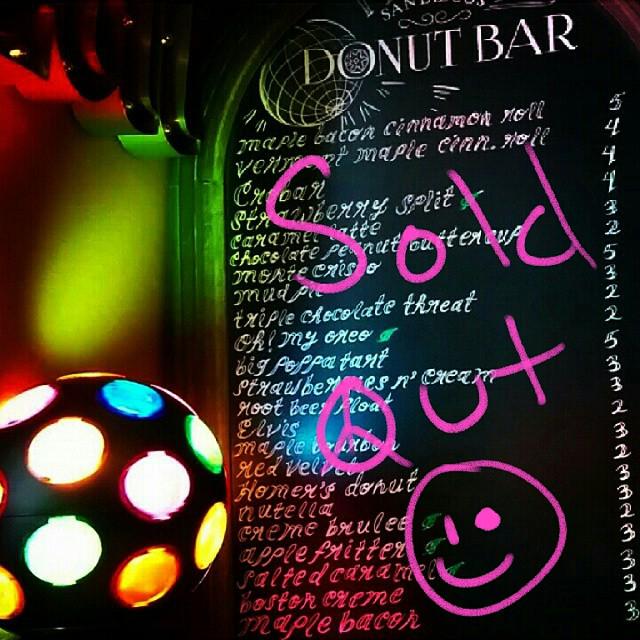 DONUT BAR
maple bacon cinnamon roll 5
vermont maple cinn. roll 4
Croban 4
Strawberry split 4
caramel latte 3
chocolate peanut buttercup 2
monte cristo 5
mud pie 3
triple chocolate threat 2
Oh! my oreo 2
big poppa tart 5
strawberries n' cream 3
root beer float 3
Elvis 2
maple bourbon 3
red velvet 2
Homer's donut 2
nutella 3
creme brulee 3
apple fritter 3
salted caramel 3
boston creme 3
maple bacon 3
Sold
Out